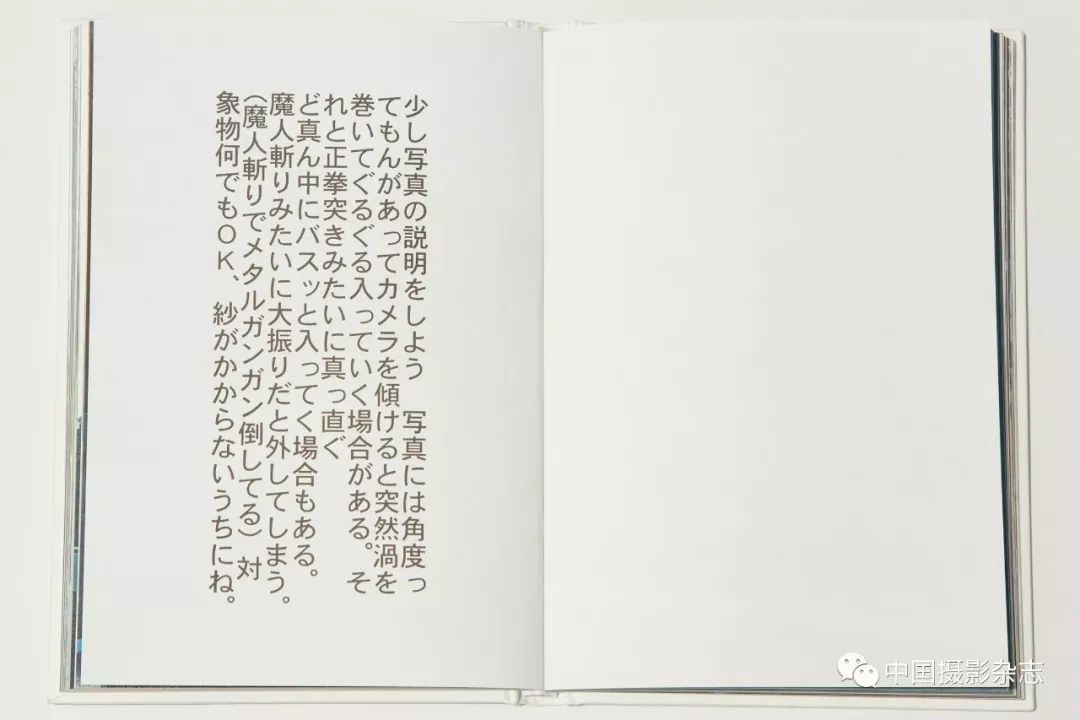 少し写真の説明をしよう　写真には角度っ
てもんがあってカメラを傾けると突然渦を
巻いてぐるぐる入っていく場合がある。そ
れと正拳突きみたいに真っ直ぐ
ど真ん中にバスッと入ってく場合もある。
魔人斬りみたいに大振りだと外してしまう。
（魔人斬りでメタルガンガン倒してる）対
象物何でもＯＫ、紗がかからないうちにね。
中国摄影杂志